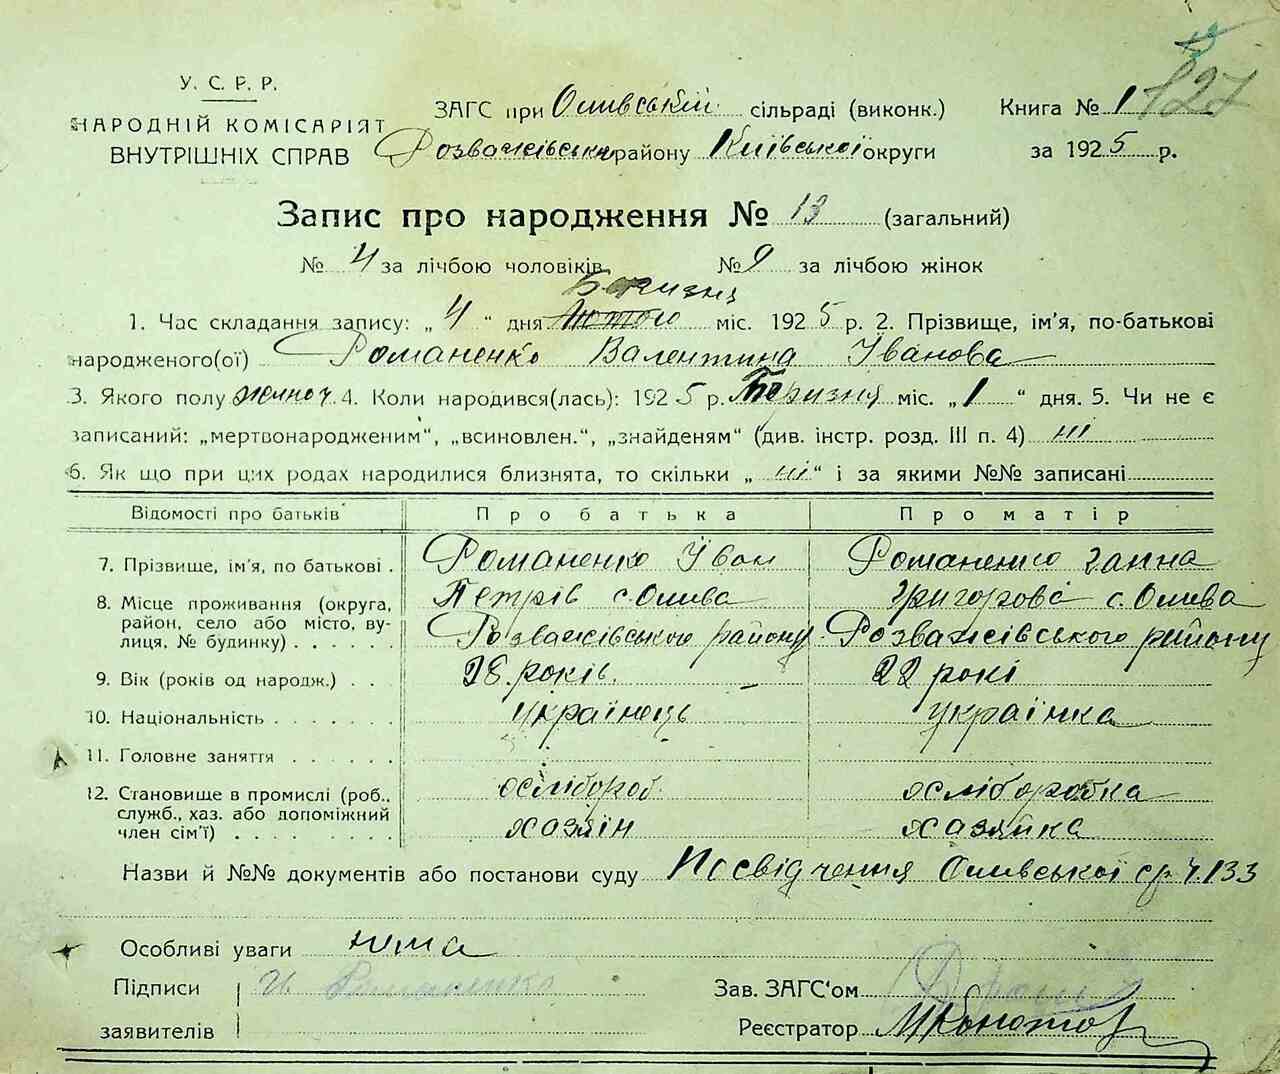 У. С. Р. Р.
НАРОДНІЙ КОМІСАРІЯТ
ВНУТРІШНІХ СПРАВ
ЗАГС при Оливській сільраді (виконк.)
Розважівськ району Київської округи
Книга № 1
127
за 1925 р.
Запис про народження № 13 (загальний)
№ 4 за лічбою чоловіків № 9 за лічбою жінок
Березня
1. Час складання запису: „ 4 “ дня Лютого міс. 1925 р. 2. Прізвище, ім'я, по-батькові
народженого(ої) Романенко Валентина Іванова
3. Якого полу жіноч 4. Коли народився(лась): 1925 р. Березня міс. „ 1 “ дня. 5. Чи не є
записаний: „мертвонародженим“, „всиновлен.“, „знайденям“ (див. інстр. розд. III п. 4) ні
6. Як що при цих родах народилися близнята, то скільки „ ні “ і за якими №№ записані
Відомості про батьків Про батька Про матір
7. Прізвище, ім'я, по батькові . Романенко Іван Романенко Ганна
8. Місце проживання (округа, Петрів с. Олива Григорова с. Олива
район, село або місто, ву-
лиця, № будинку) . . . . . . Розважівського району Розважівського району
9. Вік (років од народж.) . . . 28 років. 22 рокі
10. Національність . . . . . . . українець українка
11. Головне заняття . . . . . .
12. Становище в промислі (роб., хлібороб хліборобка
служб., хаз. або допоміжний
член сім'ї) . . . . . . . . . хазяїн хазяйка
Назви й №№ документів або постанови суду Посвідчення Оливської ср. ч. 133
Особливі уваги нема
Підписи Романенко
заявителів
Зав. ЗАГС'ом
Реєстратор